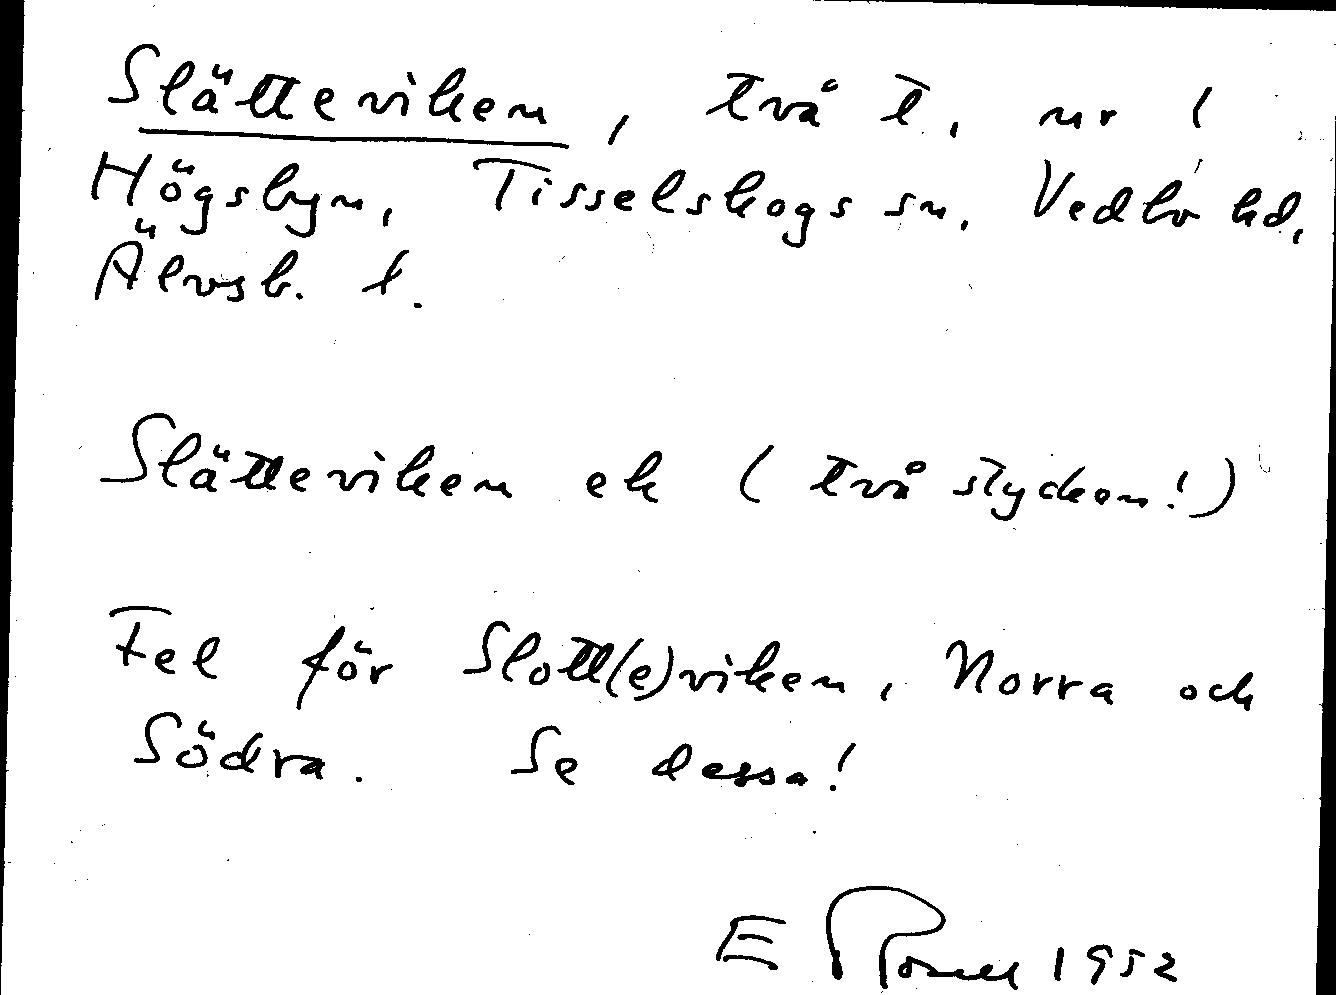 Slätteviken, två t, nr 1
Högsbyn, Tisselskogs sn, Vedbo hd,
Älvsb. l.
Slätteviken ek (två stycken!)
Fel för Slott(e)viken, Norra och
Södra. Se dessa!
E 1952